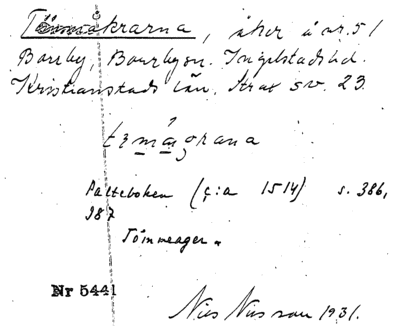 Tömmåkrarna, åker å nr. 51
Borrby, Borrby sn. Ingelstads hd.
Kristianstads län. Strax sv. 23.
Palteboken (ç:a 1514) s. 386,
387
Tömmeager.
Nr 5441
Nils Nilsson 1931.